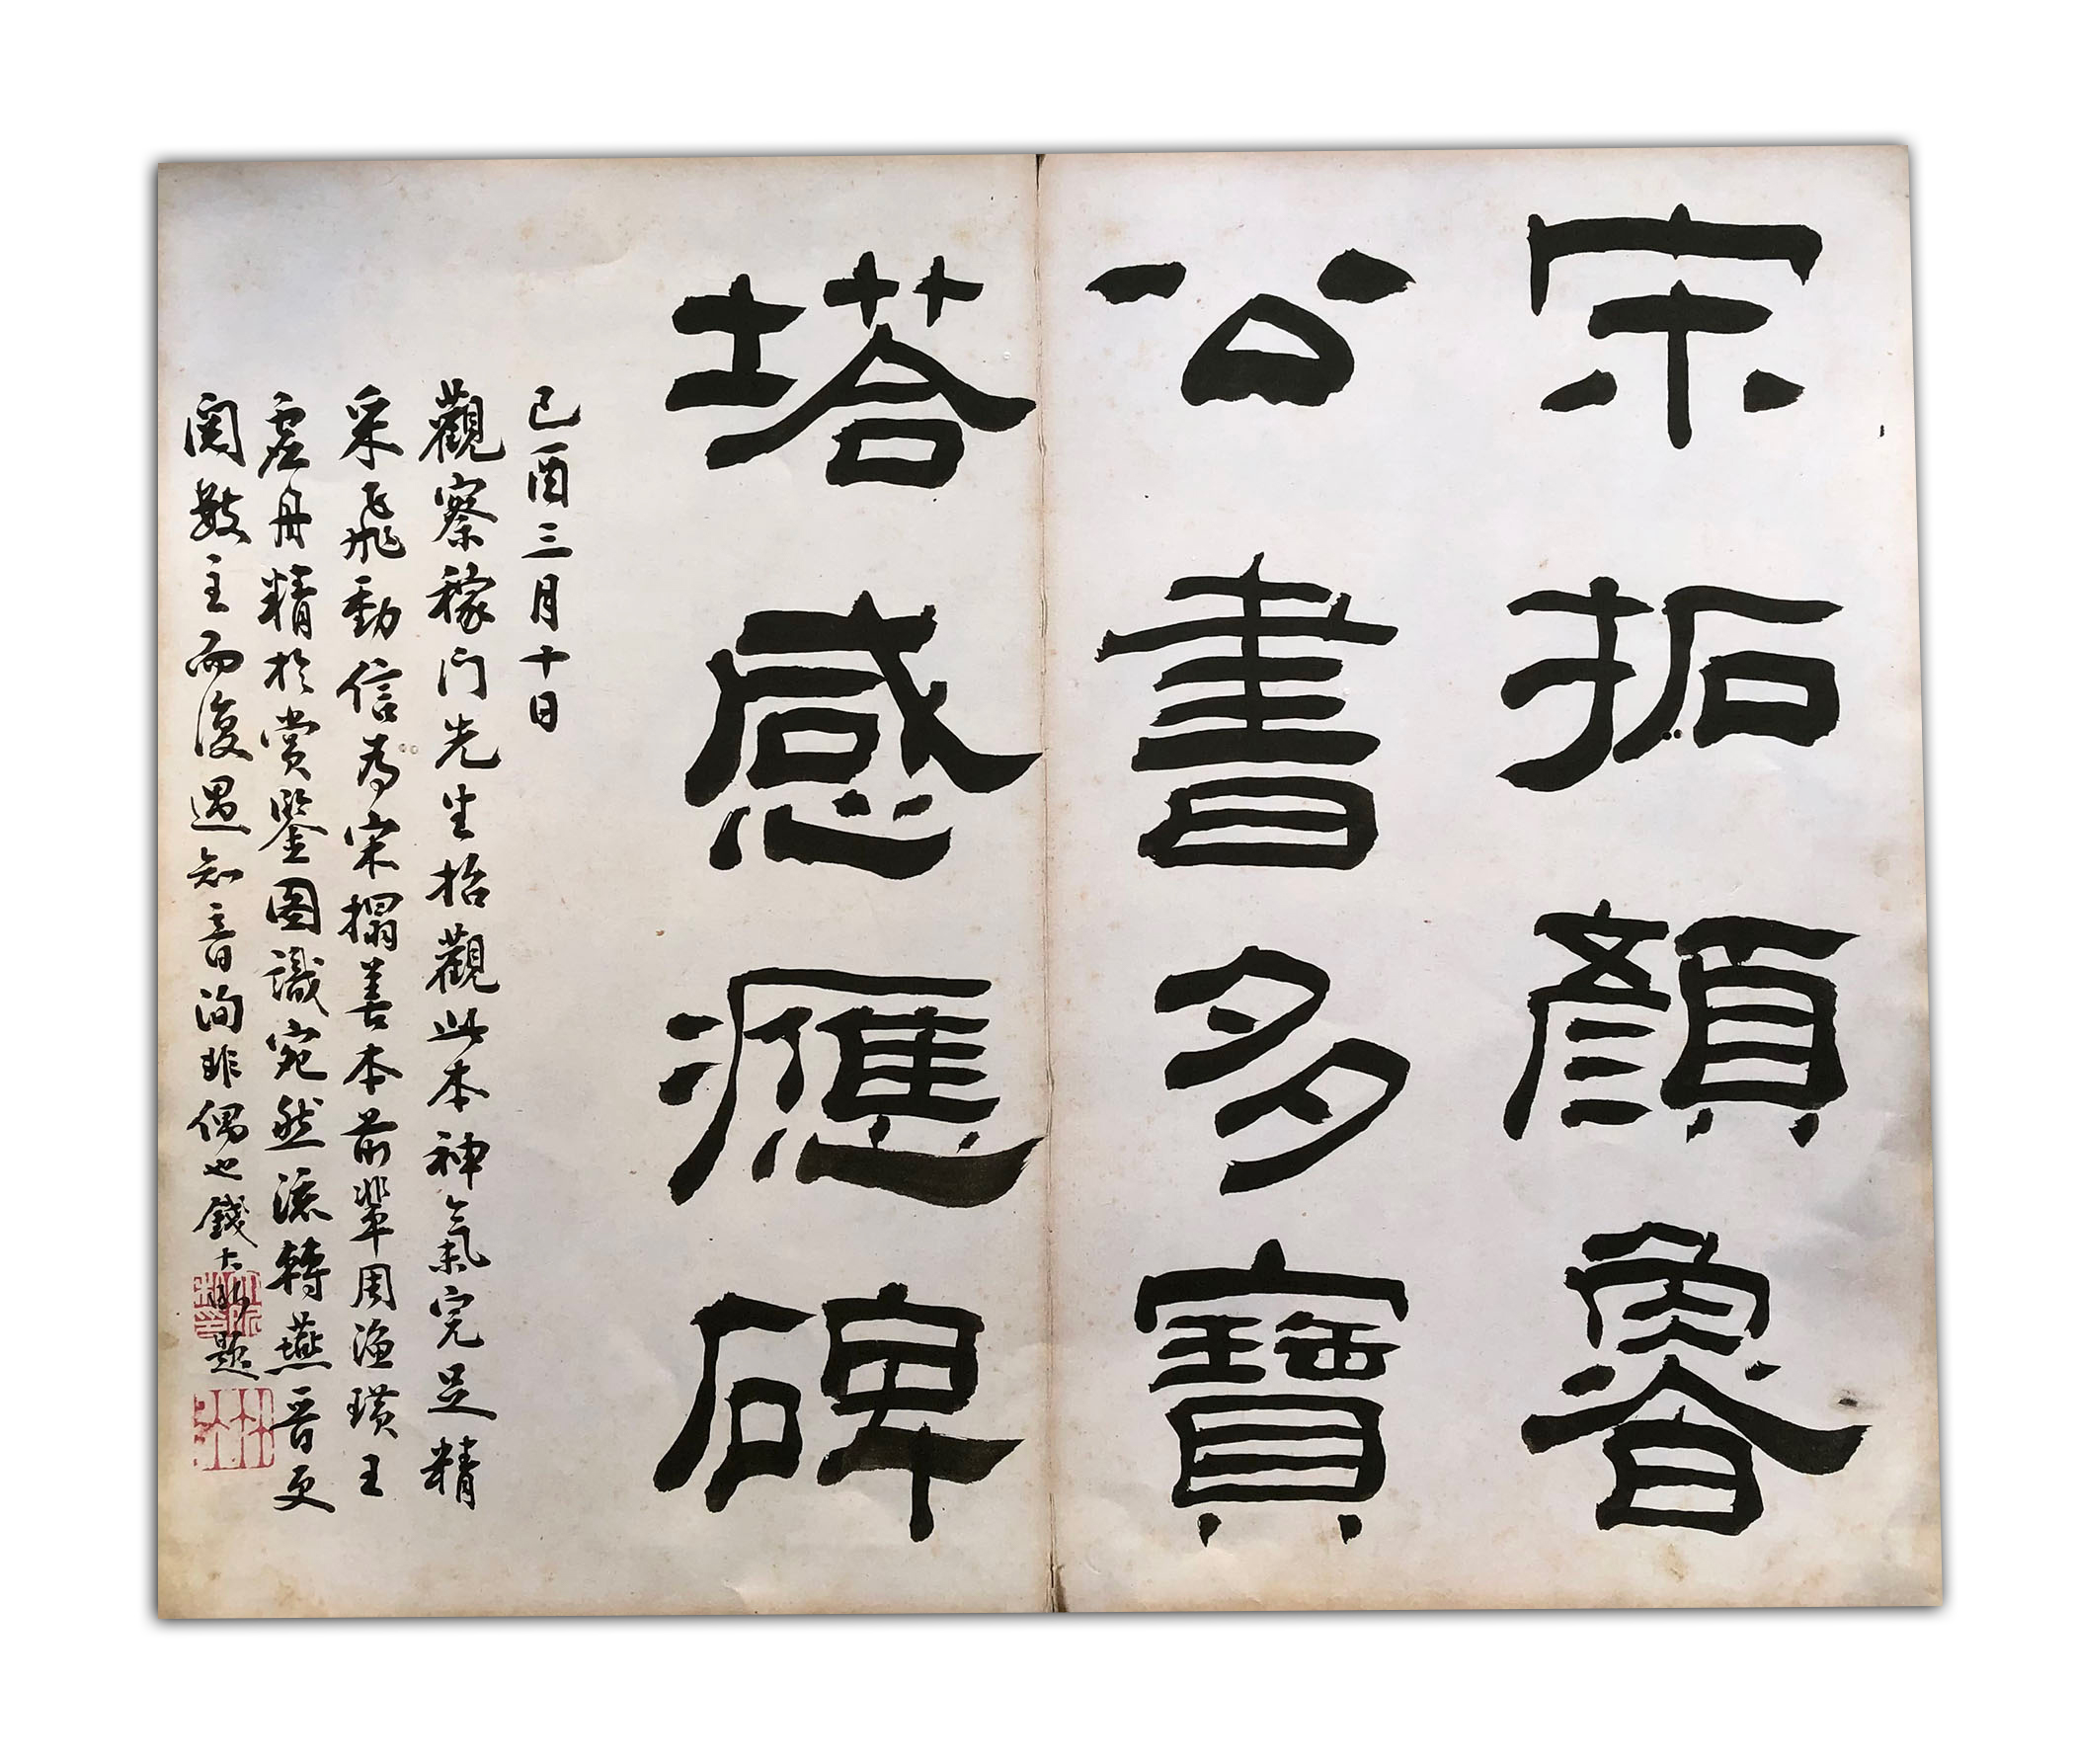 宋拓顏魯
公書多寶
塔感應碑
己酉三月十日
觀察稼门先生招觀此本神氣完足精
采飛動信為宋搨善本前輩周漁璜王
虛舟精於賞鑒圖識宛然流轉燕晋更
閱數主而復遇知音洵非偶也錢大昕題